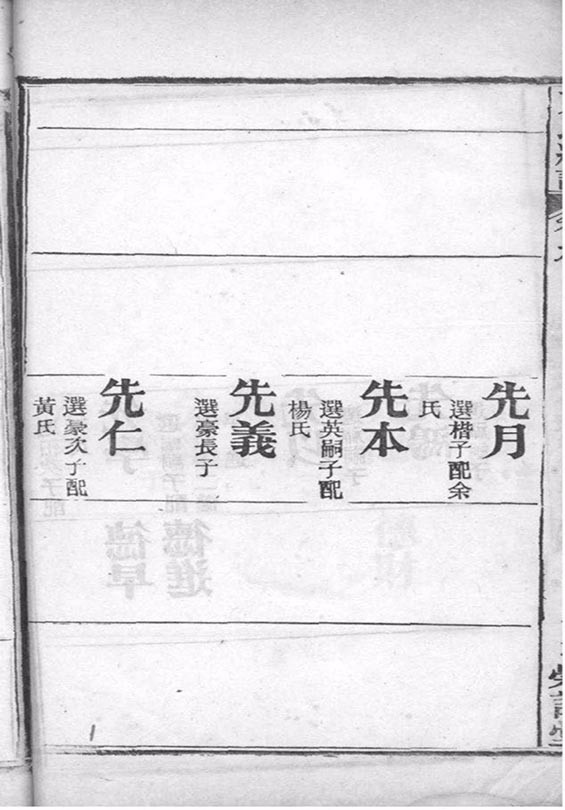 先月
選楷子配余
氏
先本
選英嗣子配
楊氏
先義
選豪長子
先仁
選豪次子配
黃氏